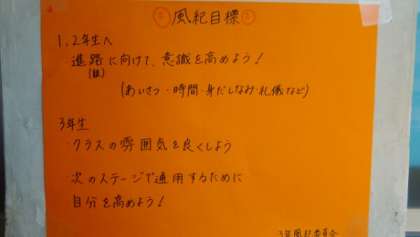 風紀目標
1,2年生へ
・進路に向けて、意識を高めよう！
(あいさつ・時間・身だしなみ・礼儀など)
3年生
・クラスの雰囲気を良くしよう
次のステージで通用するために
自分を高めよう！
3年風紀委員会